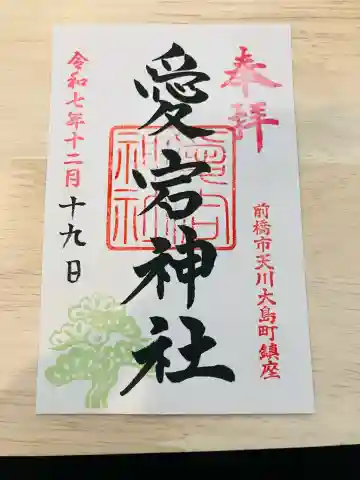 奉拝
前橋市天川大島町鎮座
愛宕神社
令和七年十二月十九日